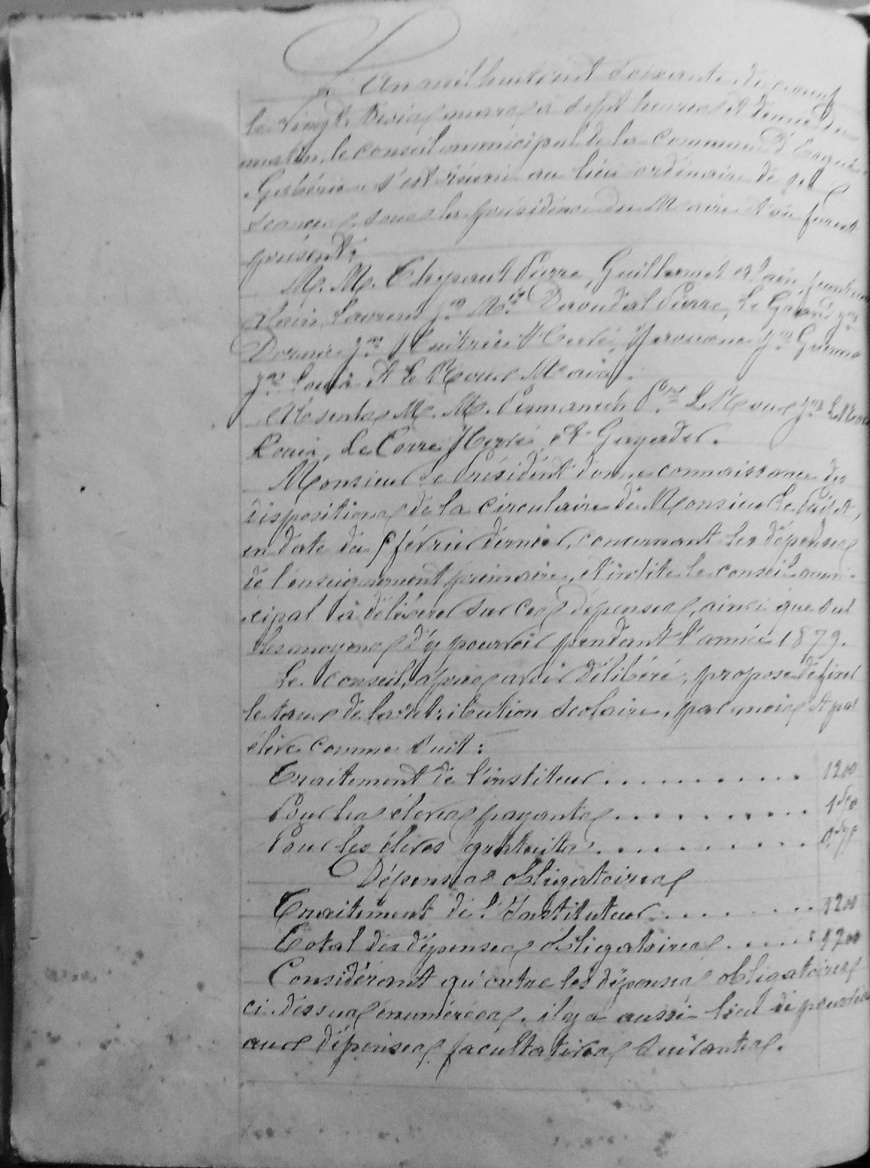 L'An mil huit cent soixante dix neuf
le vingt trois mars à sept heures et demie du
matin, le conseil municipal de la commune d'Ergué
Gabéric s'est réuni au lieu ordinaire de ses
séances sous la présidence du Maire et où furent
présents
M. M. Thépaut Pierre, Guillermet Alain,
Alain, Laurent Jn Mie Deroudal Pierre, Le Garrec Jn
Jn Huitric Hervé,
Jn Louis Et Le Roux Maire.
Absents M. M. Le Roux
Louis, Le Corre Hervé, Et Guyader.
Monsieur le Président donne connaissance des
dispositions de la circulaire de Monsieur le Préfet,
en date du février dernier, concernant les dépenses
de l'enseignement primaire, et invite le conseil muni-
cipal à délibérer sur ces dépenses, ainsi que sur
les moyens d'y pourvoir pendant l'année 1879.
Le Conseil, après avoir délibéré, propose de fixer
le taux de la rétribution scolaire, par mois et par
élève comme suit :
Traitement de l'instituteur . . . . . . . . . . . 1200
Pour les élèves payants . . . . . . . . . . 1,50
Pour les élèves gratuits . . . . . . . . . .
Dépenses obligatoires
Traitement de l'Instituteur . . . . . . . 1200
Total des dépenses obligatoires . . . . . 1200
Considérant qu'outre les dépenses obligatoires
ci dessus énumérées, il y a aussi lieu de pourvoir
aux dépenses facultatives suivantes.